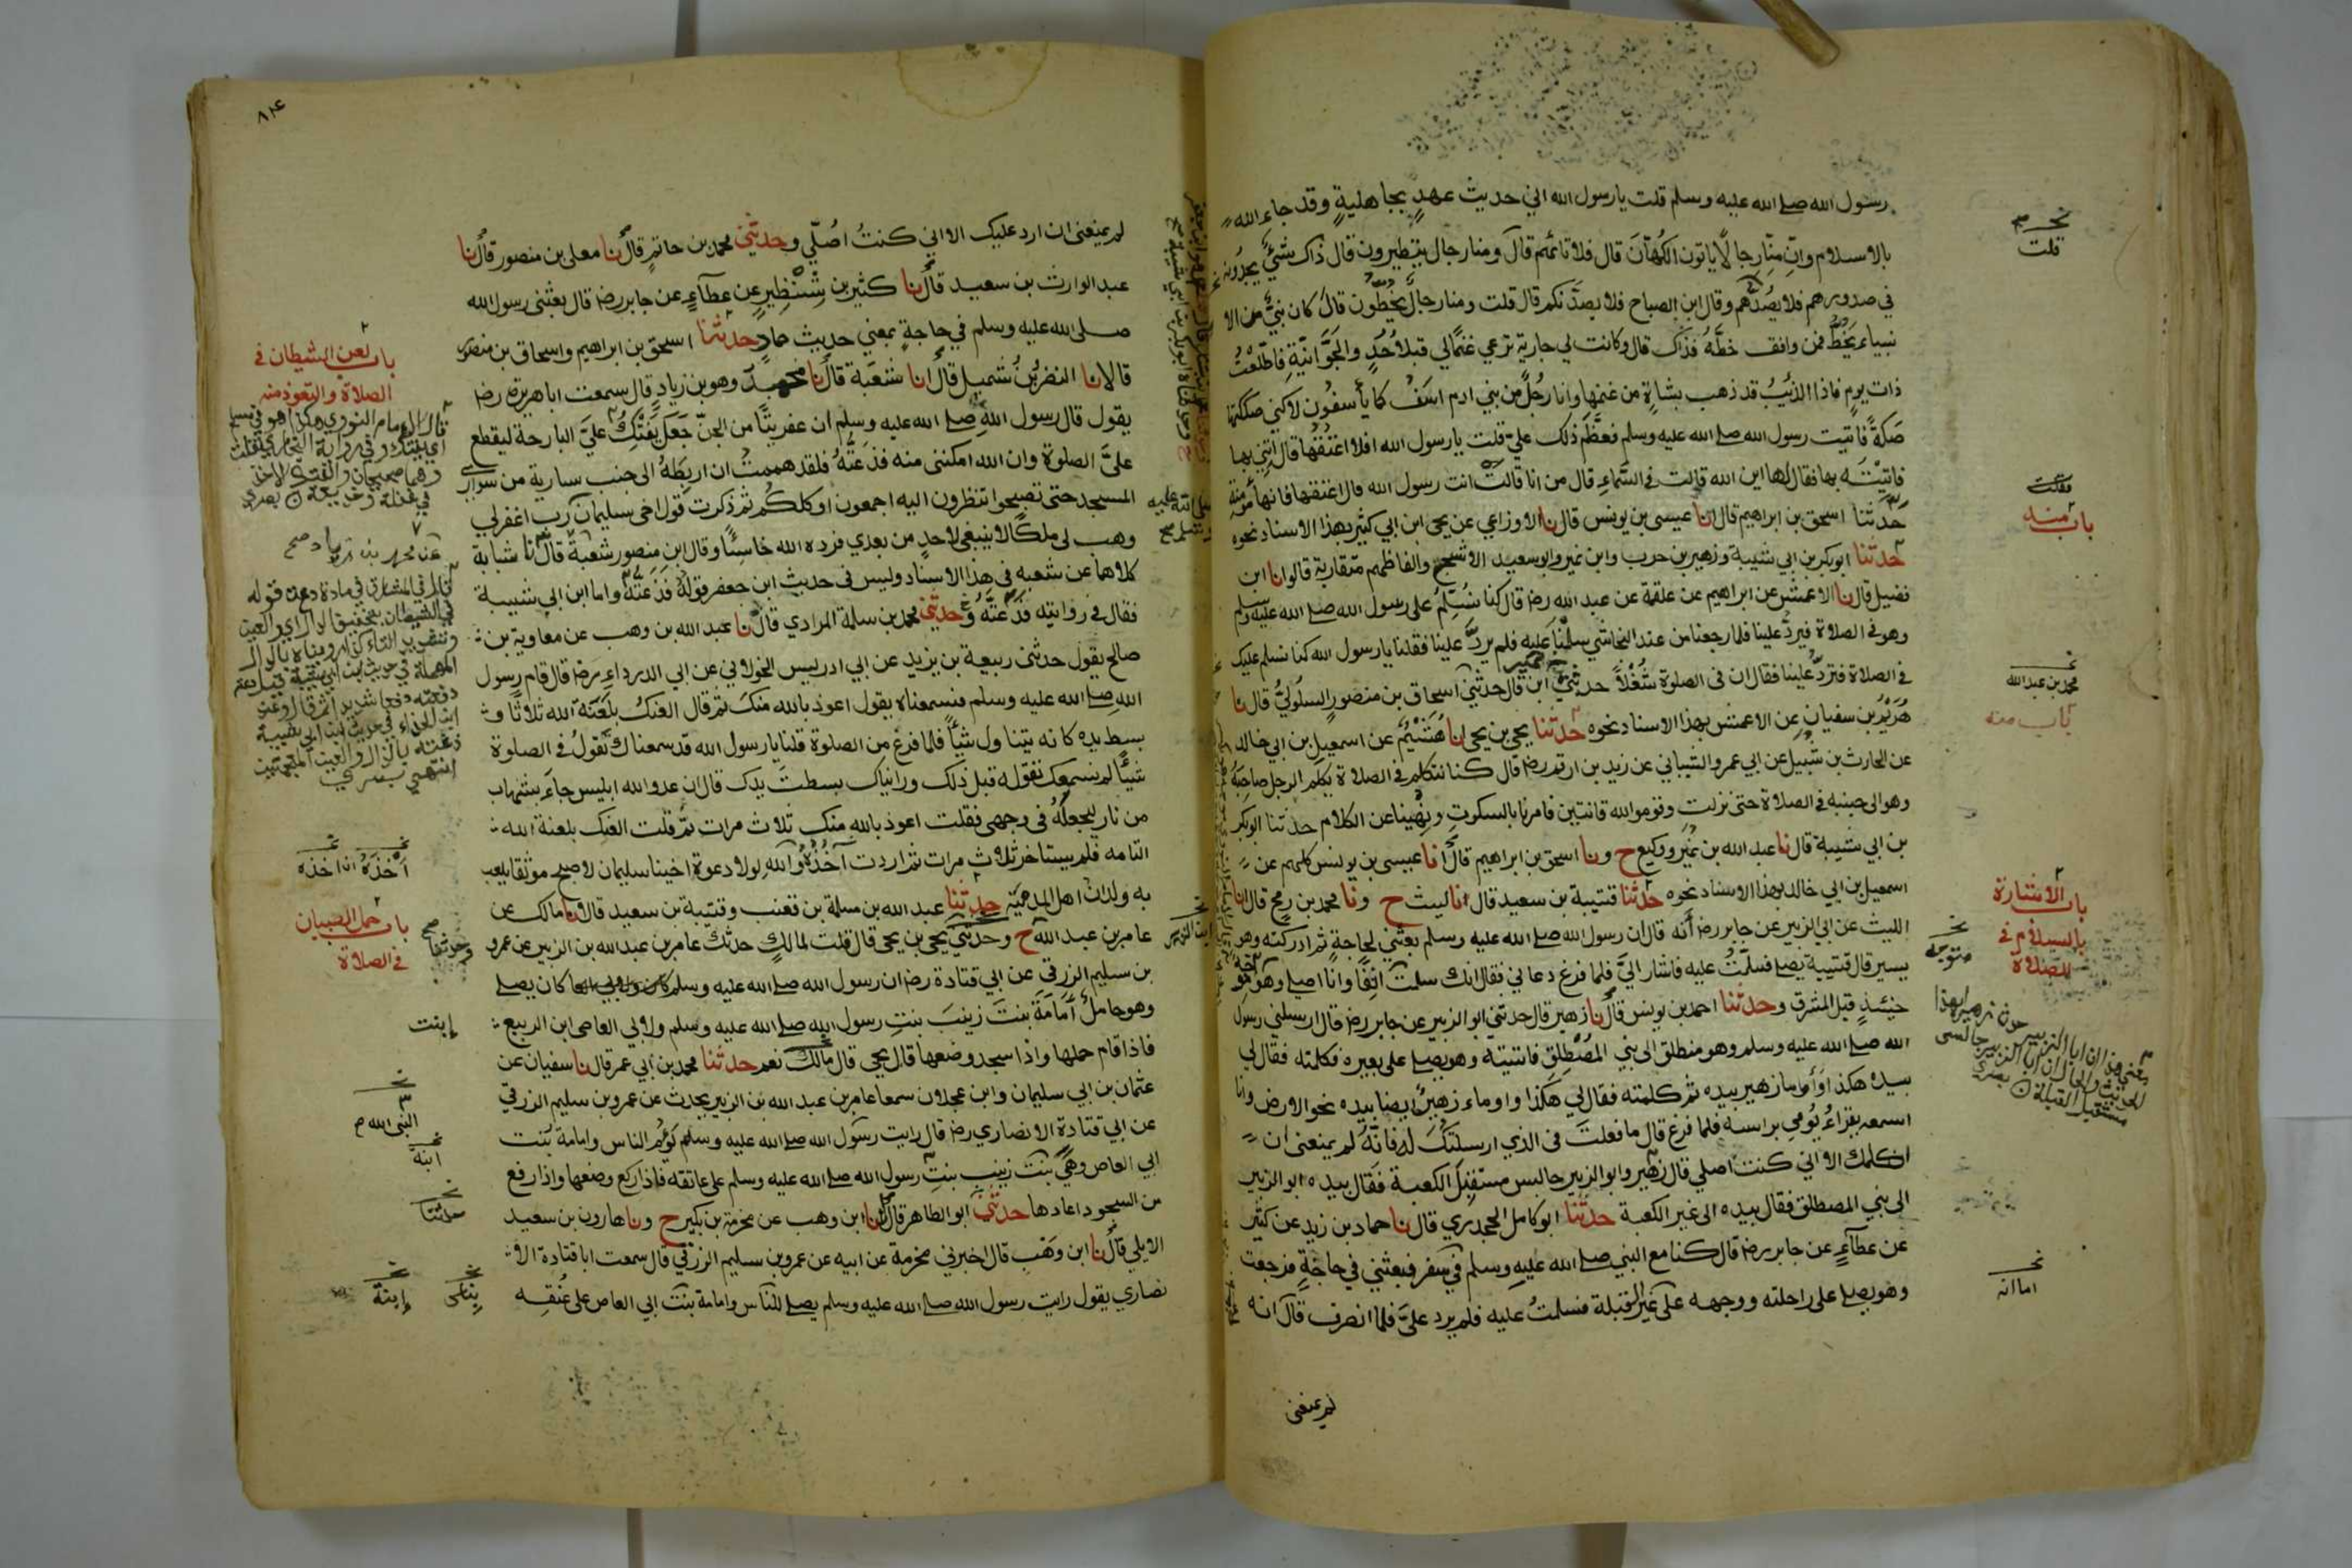 رسول الله صلے الله عليه وسلم قلت يا رسول الله اني حديث عهدٍ بجاهليةٍ وقد جاء الله
بالاسلام وانّ منّا رجالًا ياتون الكُهّان قال فلا تاتهم قال ومنا رجال يتطيرون قال ذاك شئ يجدونه
في صدورهم فلا يصُدَّهم وقال ابن الصباح فلا يصدَّنكم قال قلت ومنا رجال يخُطُّون قال كان نبيٌّ من الا
نبياء يَخُطُّ فمن وافق خطَّهُ فذاك قال وكانت لي جارية ترعي غنمًا لي قبل اُحُدٍ والجَوَّانيّةِ فاطّلعْتُ
ذات يوم فاذا الذئيبُ قد ذهب بشاةٍ من غنمها وانا رجُلٌ من بني ادم اسَفُ كما يأسفُون لاكني صككتها
صَكّةً فاتيت رسول الله صلے الله عليه وسلم فعظَّم ذلك عليّ قلت يا رسول الله افلا اعتقُها قال ائتِني بها
فاتيتُه بها فقال لها اين الله قالت في السَّماءِ قال من انا قالت انت رسول الله قال اعتقها فانها مؤمنة
حدثنا اسحق بن ابراهيم قال انا عيسى بن يونس قال نا الاوزاعي عن يحيى ابن ابي كثير بهذا الاسناد نحوه
حدثنا ابوبكر بن ابي شيبة وزهير بن حرب وابن نمير وابو سعيد الاشجع والفاظهم متقاربة قالوا نا ابن
فضيل قال نا الاعمش عن ابراهيم عن علقمة عن عبد الله رضه قال كنا نُسَلِّمُ على رسول الله صلے الله عليه وسلم
وهو في الصلاة فيردّ علينا فلما رجعنا من عند النجاشي سلّمنا عليه فلم يردَّ علينا فقلنا يا رسول الله كنا نسلم عليك
في الصلاة فتردُّ علينا فقال ان في الصلوة شُغْلًا حدثني ابن نمير قال حدثني اسحاق بن منصور السلُوليُّ قال نا
هُرَيْمُ بن سفيان عن الاعمش بهذا الاسناد نحوه حدثنا يحيى بن يحيى انا هُشَيْمٌ عن اسمعيل بن ابي خالد
عن الحارث بن شُبيل عن ابي عمرو الشيباني عن زيد بن ارقم رضه قال كنا نتكلم في الصلاة يكلّم الرجل صاحبَهُ
وهو الى جنبه في الصلاة حتى نزلت وقوموا لله قانتين فامرنا بالسكوتِ ونُهينا عن الكلام حدثنا ابوبكر
بن ابي شيبة قال نا عبد الله بن نُمير ووكيع ح ونا اسحق بن ابراهيم قال انا عيسى بن يونس كلهم عن
اسمعيل بن ابي خالد بهذا الاسناد نحوه حدثنا قتيبة بن سعيد قال انا ليث ح ونا محمد بن رمح قال انا
الليث عن ابي الزبير عن جابر رضه أنّه قال ان رسول الله صلے الله عليه وسلم بعثني لحاجةٍ ثم ادركته وهو
يسير قال قتيبة يصلے فسلّمتُ عليه فاشار اليَّ فلما فرغ دعاني فقال انك سلمت انِفًا وانا اصلے وهو
حينئذٍ قبل المشرق وحدثنا احمد بن يونس قال نا زهير قال حدثني ابو الزبير عن جابر رضه قال ارسلني رسول
الله صلے الله عليه وسلم وهو منطلق الى بني المُصْطلِق فاتيته وهو يصلے على بعيره فكلمته فقال لي
بيده هكذا وَأَومأ زهير بيده ثم كلمته فقال لي هكذا واوماء زهيرٌ ايضا بيده نحو الارض وانا
اسمعه يقراءُ يُومي براسه فلما فرغ قال ما فعلتَ في الذي ارسلتكَ له فانّهُ لم يمنعني ان
اكلمك الا اني كنت اصلي قال زهير وابو الزبير جالس مستقبلَ الكعبة فقال بيده ابو الزبير
الى بني المصطلق فقال بيده الى غير الكعبة حدثنا ابو كامل الجحدري قال نا حماد بن زيد عن كثير
عن عطآءٍ عن جابر رضه قال كنا مع النبي صلے الله عليه وسلم في سفر فبعثني في حاجةٍ فرجعت
وهو يصلے على راحلته ووجهه على غير القبلة فسلمتُ عليه فلم يرد عليَّ فلما انصرف قال انه
لم يمنعني
قلت
فقلت
باب منه
محمد بن عبد الله
باب منه
باب الاشارة
بالسلام في
الصلاة
متوجه
اما انه
٨١٤
لم يمنعني ان ارد عليك الا اني كنتُ اُصلّي وحدثني محمد بن حاتمٍ قال نا معلى بن منصور قال نا
عبد الوارث بن سعيد قال نا كثير بن شِنْظِيرٍ عن عطآءٍ عن جابر رضه قال بعثني رسول الله
صلى الله عليه وسلم في حاجةٍ بمعني حديث حمادٍ حدثنا اسحق بن ابراهيم واسحاق بن منصور
قالا نا النضر بُن شميل قال انا شعبَة قال نا محمدٌ وهو بن زيادٍ قال سمعت ابا هريرة رضه
يقول قال رسول الله صلے الله عليه وسلم ان عفريتًا من الجنّ جَعَل يَفْتِكُ عليَّ البارحة ليقطع
عليَّ الصلوة وان الله امكنني منه فذعتُّهُ فلقد هممتُ ان اربطَهُ الى جنب سارية من سواري
المسجد حتى تصبحوا تنظرون اليه اجمعون او كلكُم ثم ذكرت قول اخي سليمان رب اغفرلي
وهب لي ملكًا لا ينبغي لاحدٍ من بعدي فرده الله خاسئًا وقال ابن منصور شعبة قال نا شبابة
كلاهما عن شعبه في هذا الاسناد وليس في حديث ابن جعفر قولهُ فَذَعتُّهُ واما ابن ابي شيبة
فقال في روايته فدَعتُّهُ وحدثني محمد بن سلمة المرادي قال نا عبد الله بن وهب عن معاوية بن
صالح يقول حدثني ربيعة بن يزيد عن ابي ادريس الخولاني عن ابي الدرداءِ رضه قال قام رسول
الله صلے الله عليه وسلم فسمعناه يقول اعوذ بالله منكَ ثم قال العنكَ بلَعْنَة الله ثلاثًا و
بسط يده كانه يتناول شيأً فلما فرغ من الصلوة قلنا يا رسول الله قد سمعناك تقُولُ في الصلوة
شيئًا لم نسمعك تقوله قبل ذلك ورايناك بسطتَ يدك قال ان عدو الله ابليس جاءَ بشهاب
من نار ليجعلهُ في وجهي فقلت اعوذ بالله منك ثلاث مرات ثم قلت العنك بلعنة الله
التامه فلم يستاخر ثلاث مرات ثم اردت آخُذهُ والله لولا دعوة اخينا سليمان لاصبح موثقا يلعب
به ولدان اهل المدينة حدثنا عبد الله بن مسلمة بن قعنب وقتيبة بن سعيد قالا نا مالك عن
عامر بن عبد الله ح وحدثني يحيى بن يحيى قال قلت لمالكٍ حدثك عامر بن عبد الله بن الزبير عن عمرو
بن سليم الزرقي عن ابي قتادة رضه ان رسول الله صلے الله عليه وسلم كان يصلے
وهو حاملٌ اُمَامَةَ بنتَ زينبَ بنتِ رسول الله صلے الله عليه وسلم ولابي العاصي ابن الربيع
فاذا قام حملها واذا سجد وضعها قال يحيى قال مالك نعم حدثنا محمد بن ابي عمر قال نا سفيان عن
عثمان بن ابي سليمان وابن عجلان سمعا عامر بن عبد الله بن الزبير يحدث عن عمرو بن سليم الزرقي
عن ابي قتادة الانصاري رضه قال رايت رسول الله صلے الله عليه وسلم يَؤُمُّ الناس وامامة بنت
ابي العاص وهي بنت زينب بنتِ رسول الله صلے الله عليه وسلم على عاتقه فاذا ركع وضعها واذا رفع
من السجود اعادها حدثني ابو الطاهر قال نا ابن وهب عن مخرمة بن بكير ح ونا هارون بن سعيد
الايلي قال نا ابن وهب قال اخبرني مخرمة عن ابيه عن عمرو بن سليم الزرقي قال سمعت ابا قتادة الا
نصاري يقول رايت رسول الله صلے الله عليه وسلم يصلے للناس وامامة بنت ابي العاص على عُنُقِه
باب لعن الشيطان في
الصلاة والتعوذ منه
باب حمل الصبيان
في الصلاة
إبنت
النبي الله
ابنة
حدثنا
إبنة